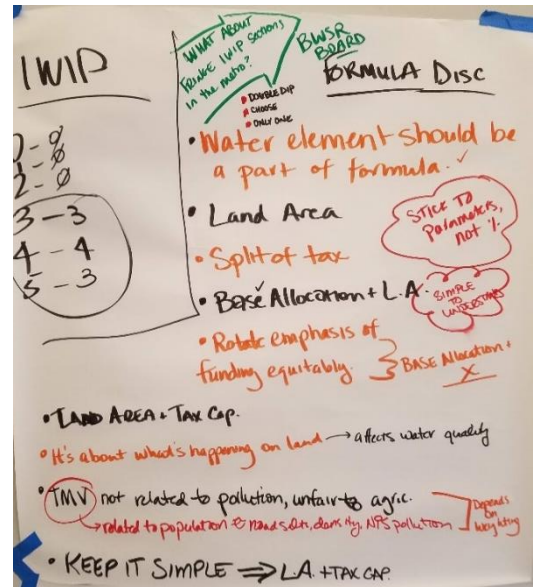 1W1P
0 - 0
1 - 0
2 - 0
3 - 3
4 - 4
5 - 3
WHAT ABOUT
FRINGE 1W1P Sections
in the metro?
• DOUBLE DIP
• CHOOSE
• ONLY ONE
BWSR
BOARD
FORMULA DISC
• Water element should be
a part of formula. ✓
• Land Area
STICK TO
Parameters,
not %.
• Split of tax
• Base Allocation + L.A.
SIMPLE
TO
UNDERSTAND
• Rotate emphasis of
funding equitably.
BASE Allocation +
X
• LAND AREA + TAX Cap.
• It's about what's happening on land → affects water quality
• TMV not related to pollution, unfair to agric.
→ related to population & road salts, density, NPS pollution
Depends
on
Weighting
• KEEP IT SIMPLE ⇒ L.A. + TAX CAP.